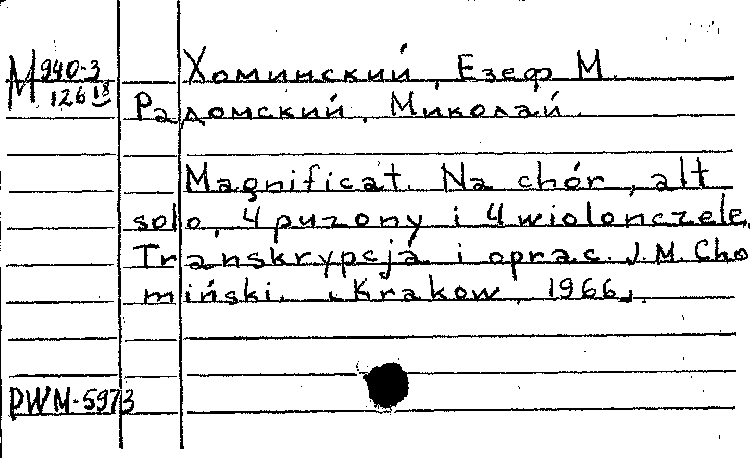 M 940-3
126 18
Хоминский, Езеф М.
Радомский, Миколай.
Magnificat. Na chór, alt
solo, 4 puzony i 4 wiolonczele.
Transkrypcja i oprac. J.M. Cho
miński. [Krakow, 1966].
PWM-5973